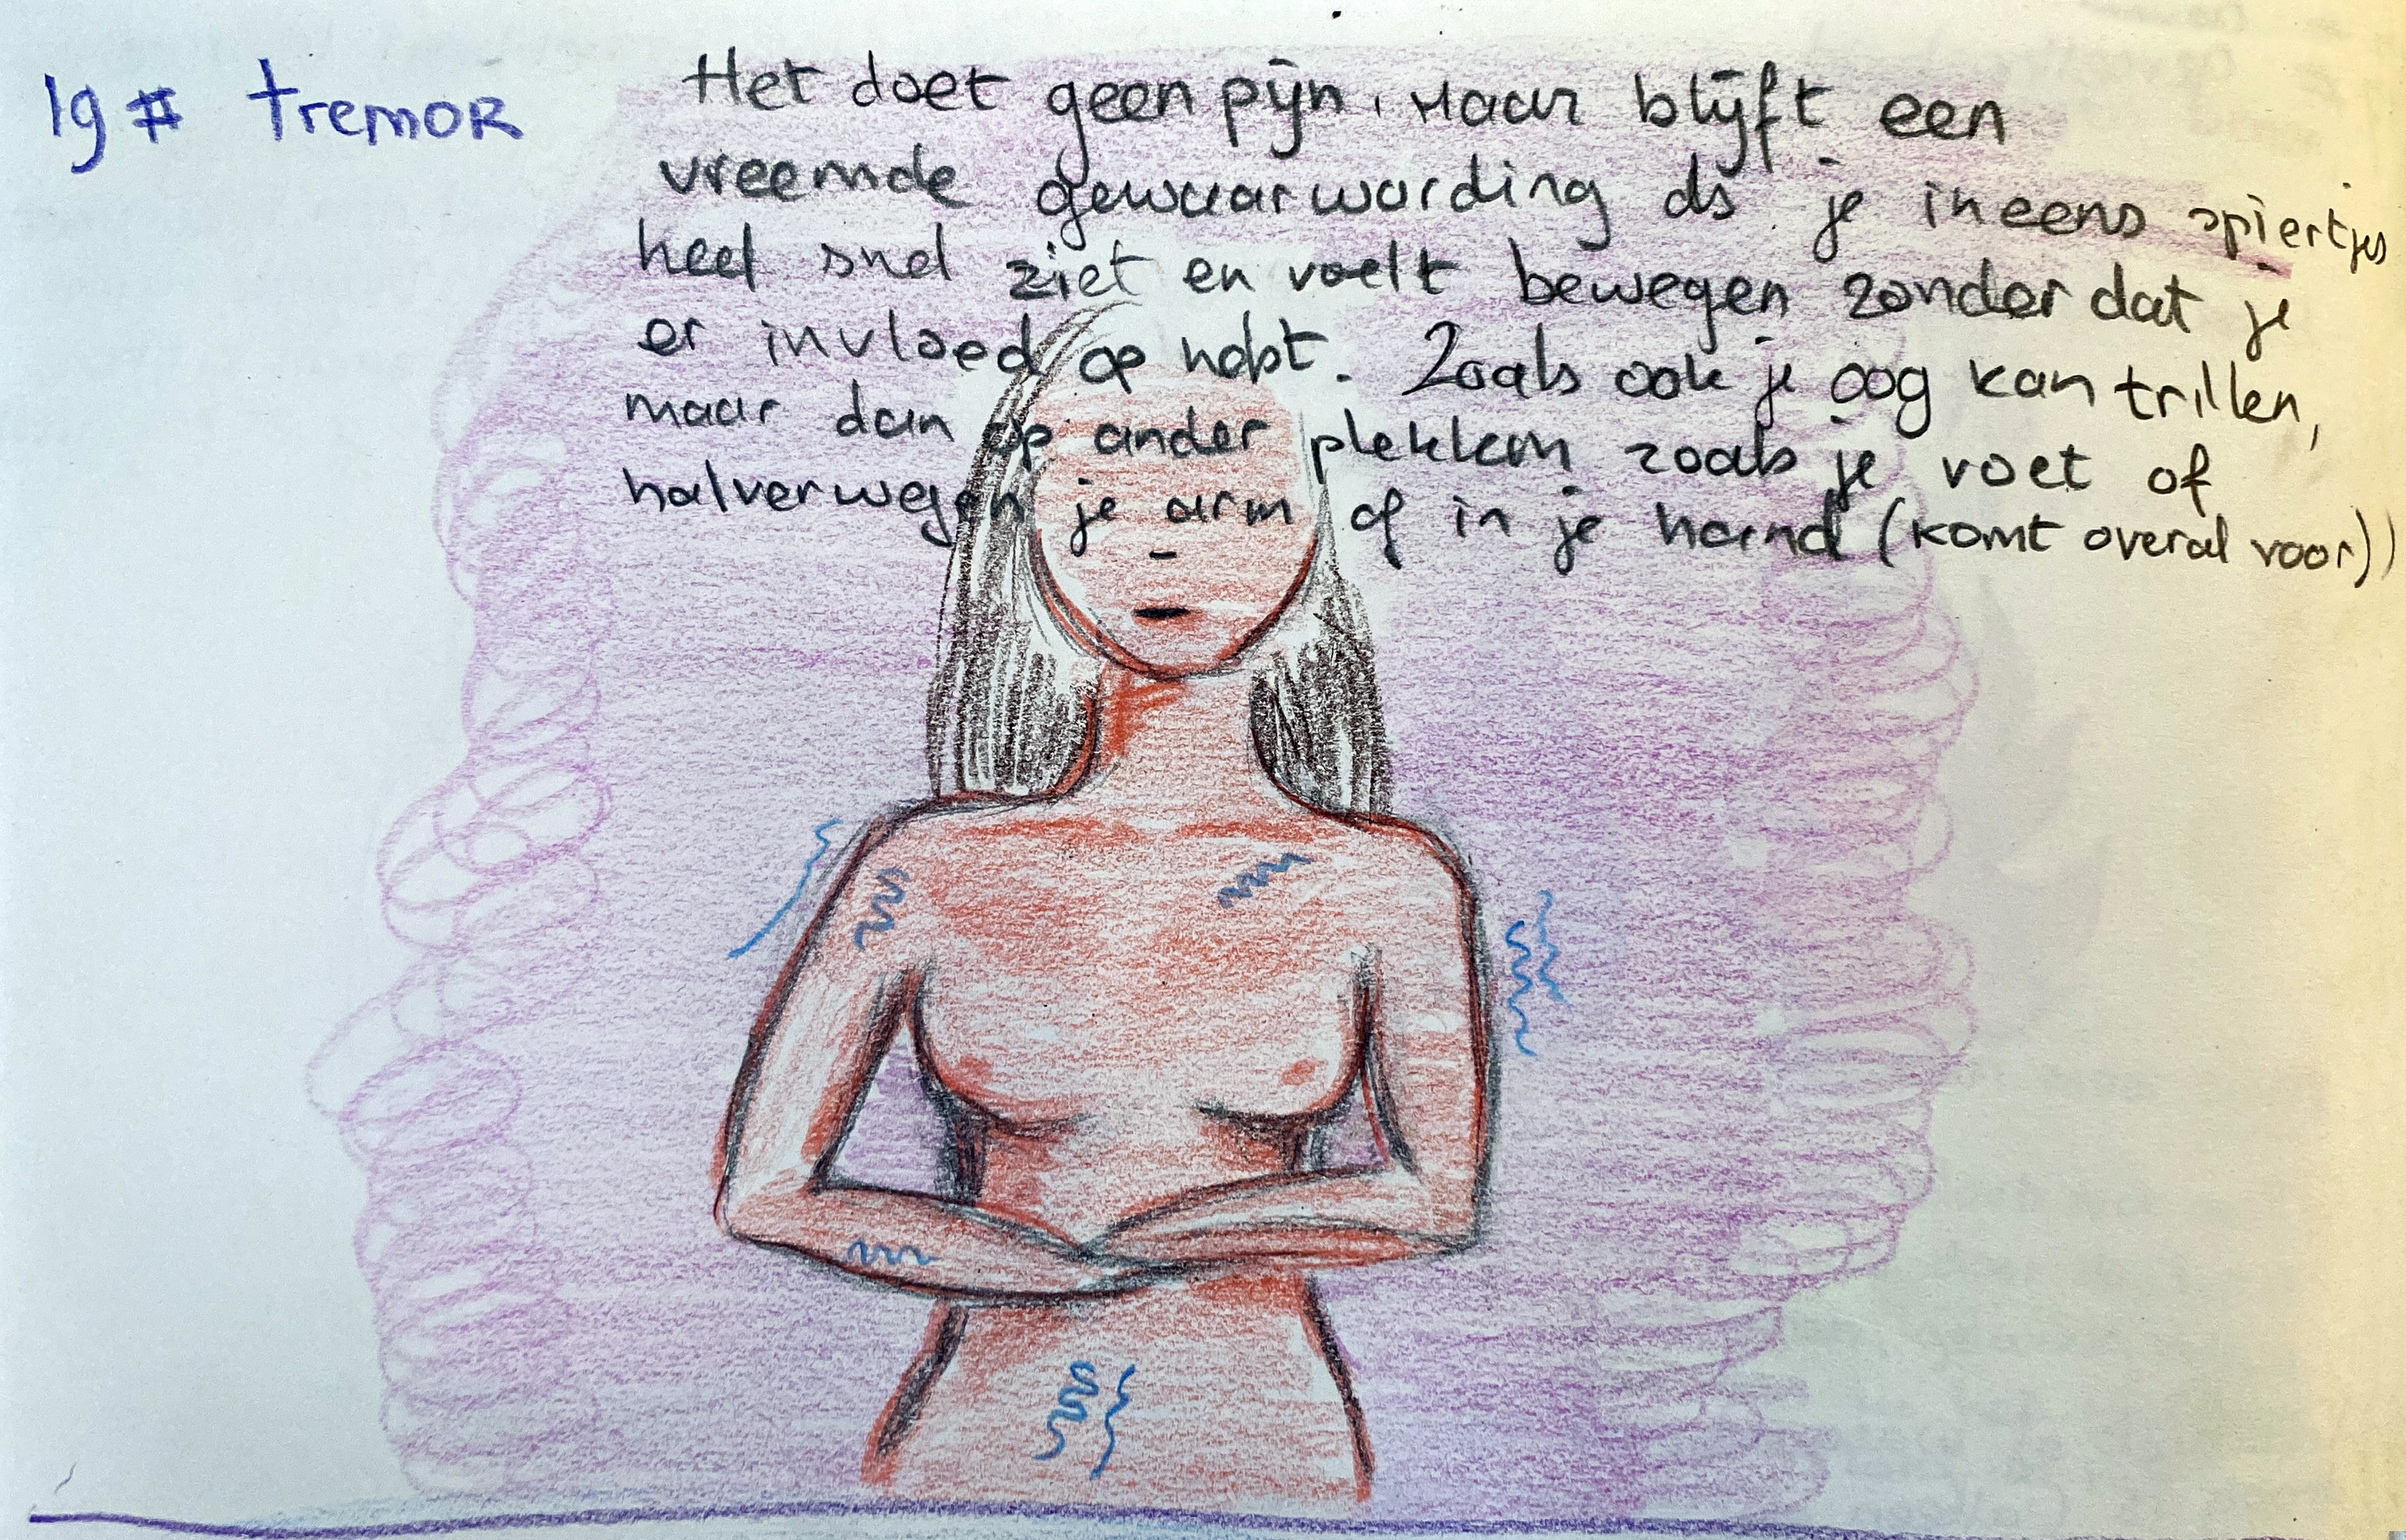 19# tremor
Het doet geen pijn, maar blijft een
vreemde gewaarwording als je ineens spiertjes
heel snel ziet en voelt bewegen zonder dat je
er invloed op hebt. Zoals ook je oog kan trillen,
maar dan op ander plekken zoals je voet of
halverwegen je arm of in je hand (komt overal voor))